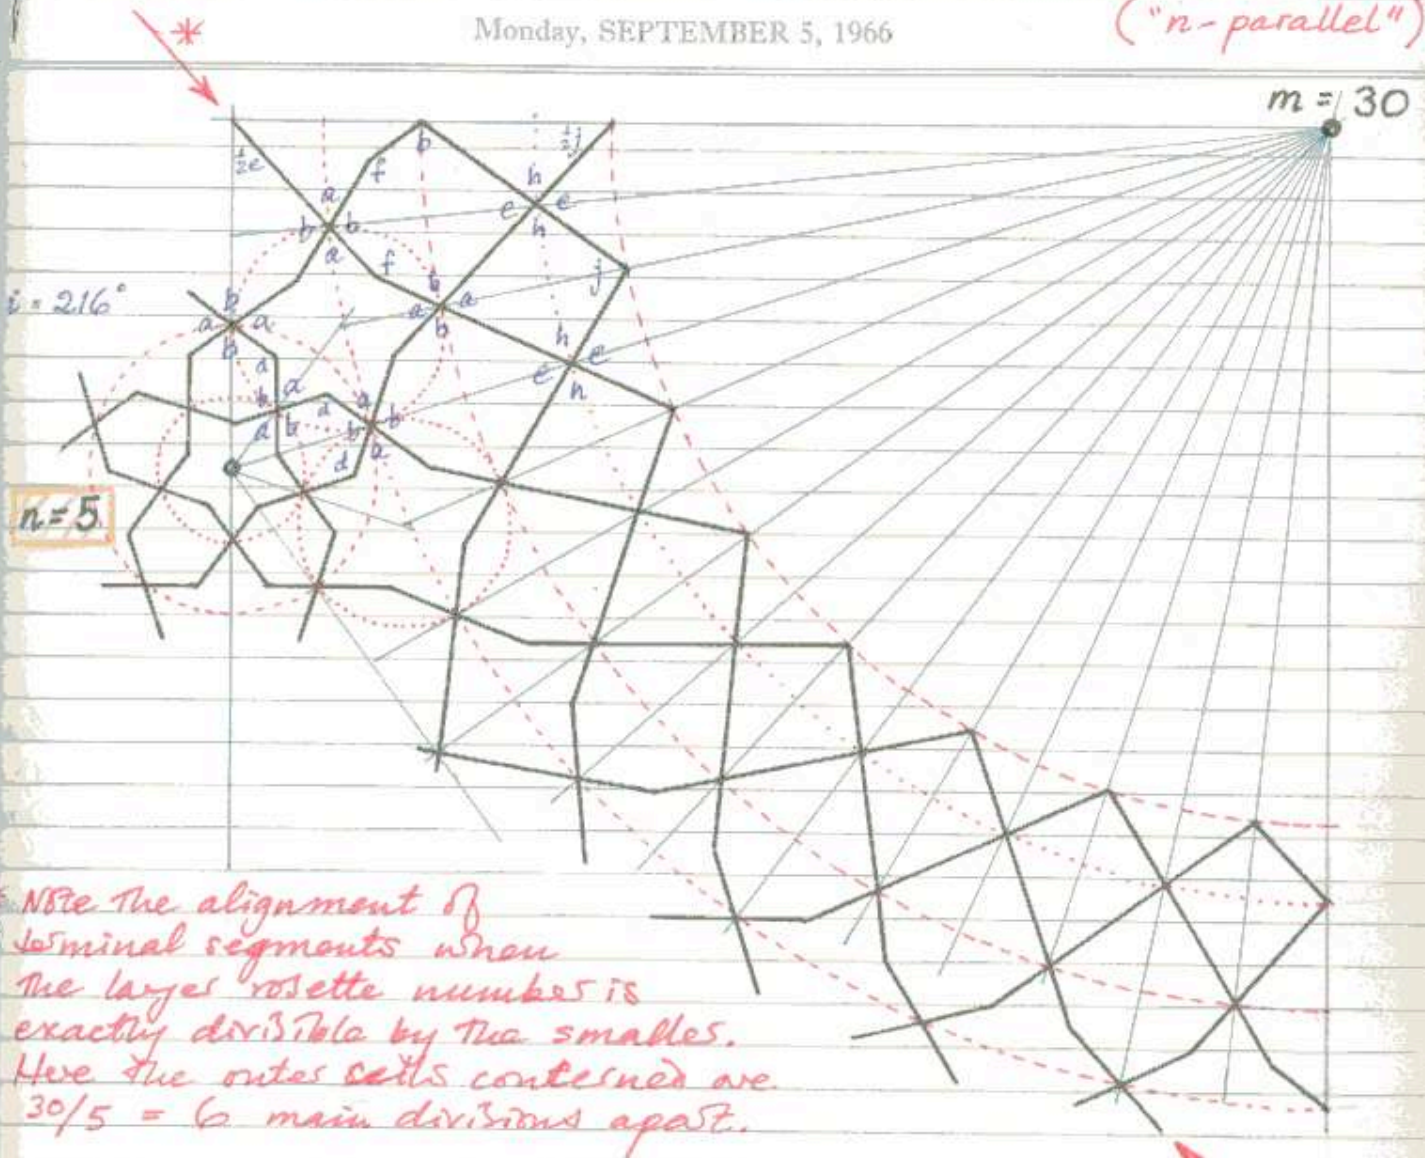 *
Monday, SEPTEMBER 5, 1966
("n-parallel")
m = 30
½e
f
b
½j
a
h
b
b
e
e
a
h
f
j
i = 216°
b
b
a
a
a
a
b
b
h
b
d
e
e
h
b
a
d
a
b
d
b
b
a
d
n=5
Note the alignment of
terminal segments when
the larger rosette number is
exactly divisible by the smaller.
Here the outer cells concerned are
30/5 = 6 main divisions apart.